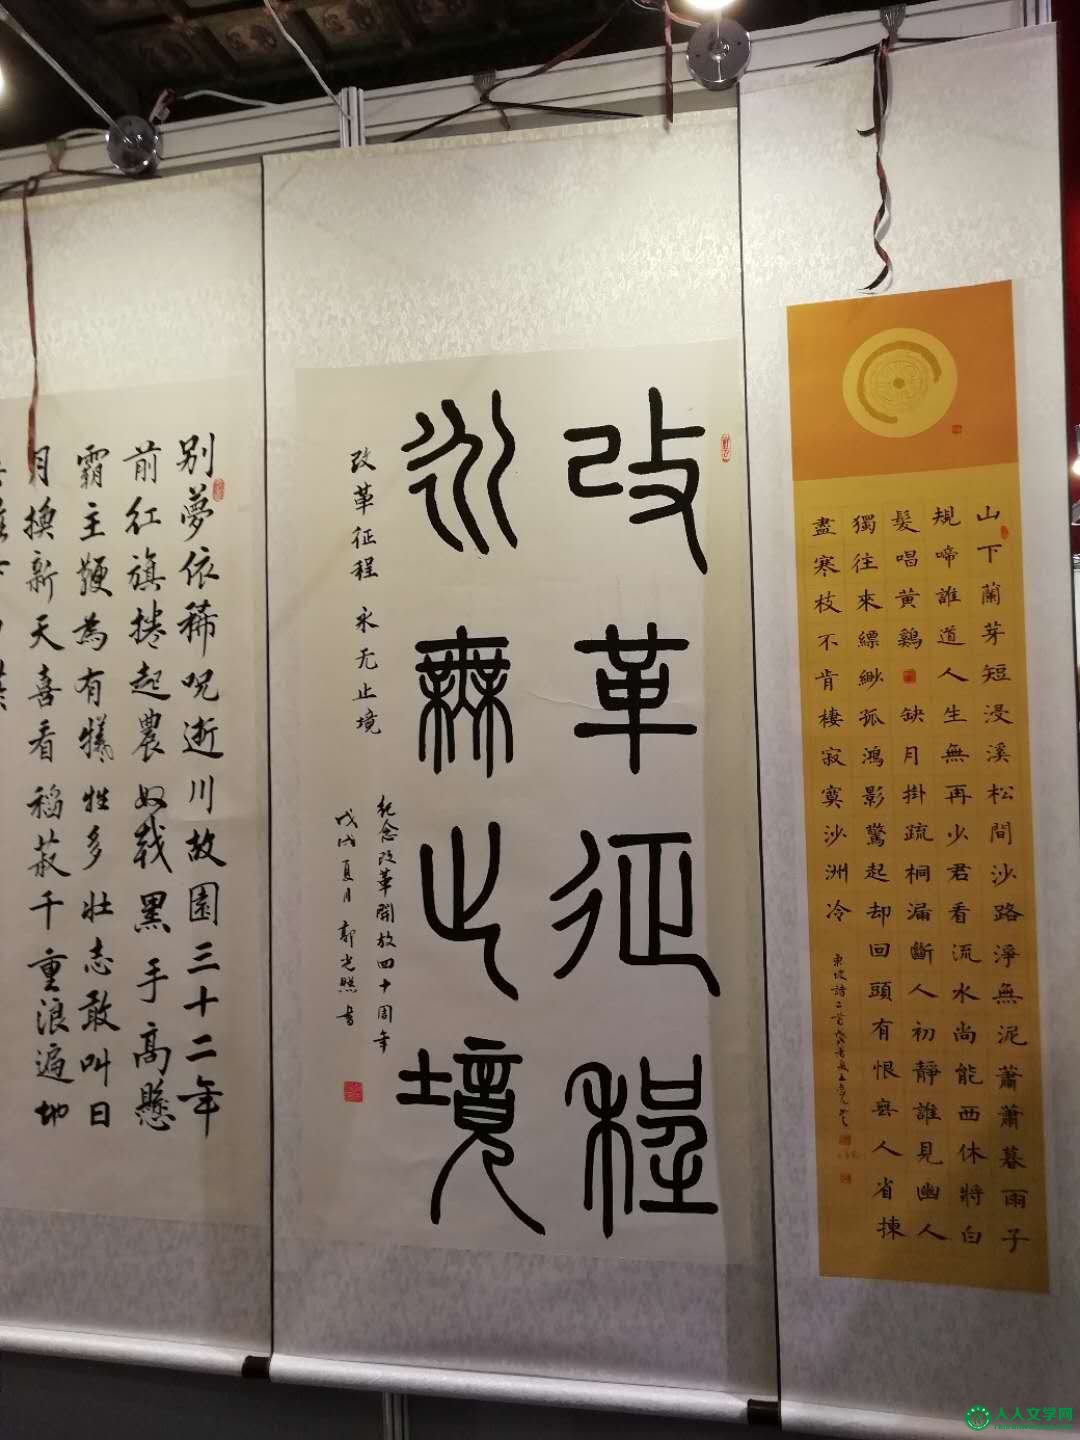 山下蘭芽短浸溪松間沙路淨無泥蕭蕭暮雨子
規啼誰道人生無再少君看流水尚能西休將白
髮唱黄鷄 缺月掛疏桐漏斷人初靜誰見幽人
獨往來縹緲孤鴻影驚起却回頭有恨無人省揀
盡寒枝不肯棲寂寞沙洲冷
東坡詩二首
改革征程
永無止境
改革征程 永无止境
纪念改革開放四十周年
戊戌夏月 郭光照书
别夢依稀咒逝川故園三十二年
前红旗捲起農奴戟黑手高懸
霸主鞭為有犧牲多壮志敢叫日
月換新天喜看稻菽千重浪遍地
人人文学网